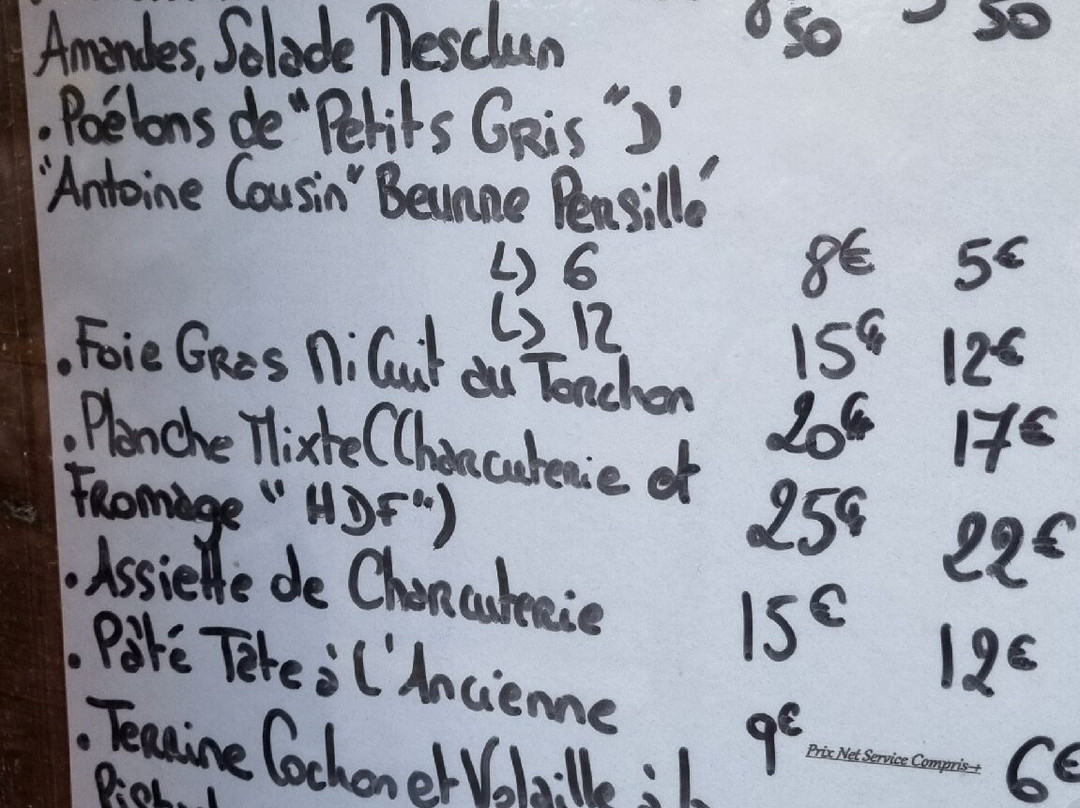 50 50
Amandes, Salade Mesclun
• Poélons de "Petits Gris" D'
"Antoine Cousin" Beurre Persillé
↳ 6 8€ 5€
↳ 12 15€ 12€
• Foie Gras Mi Cuit au Torchon 20€ 17€
• Planche Mixte (Charcuterie et
Fromage "HDF") 25€ 22€
• Assiette de Charcuterie 15€ 12€
• Pâté Tête à l'Ancienne 9€ 6€
• Terrine Cochon et Volaille à
Prix Net Service Compris→